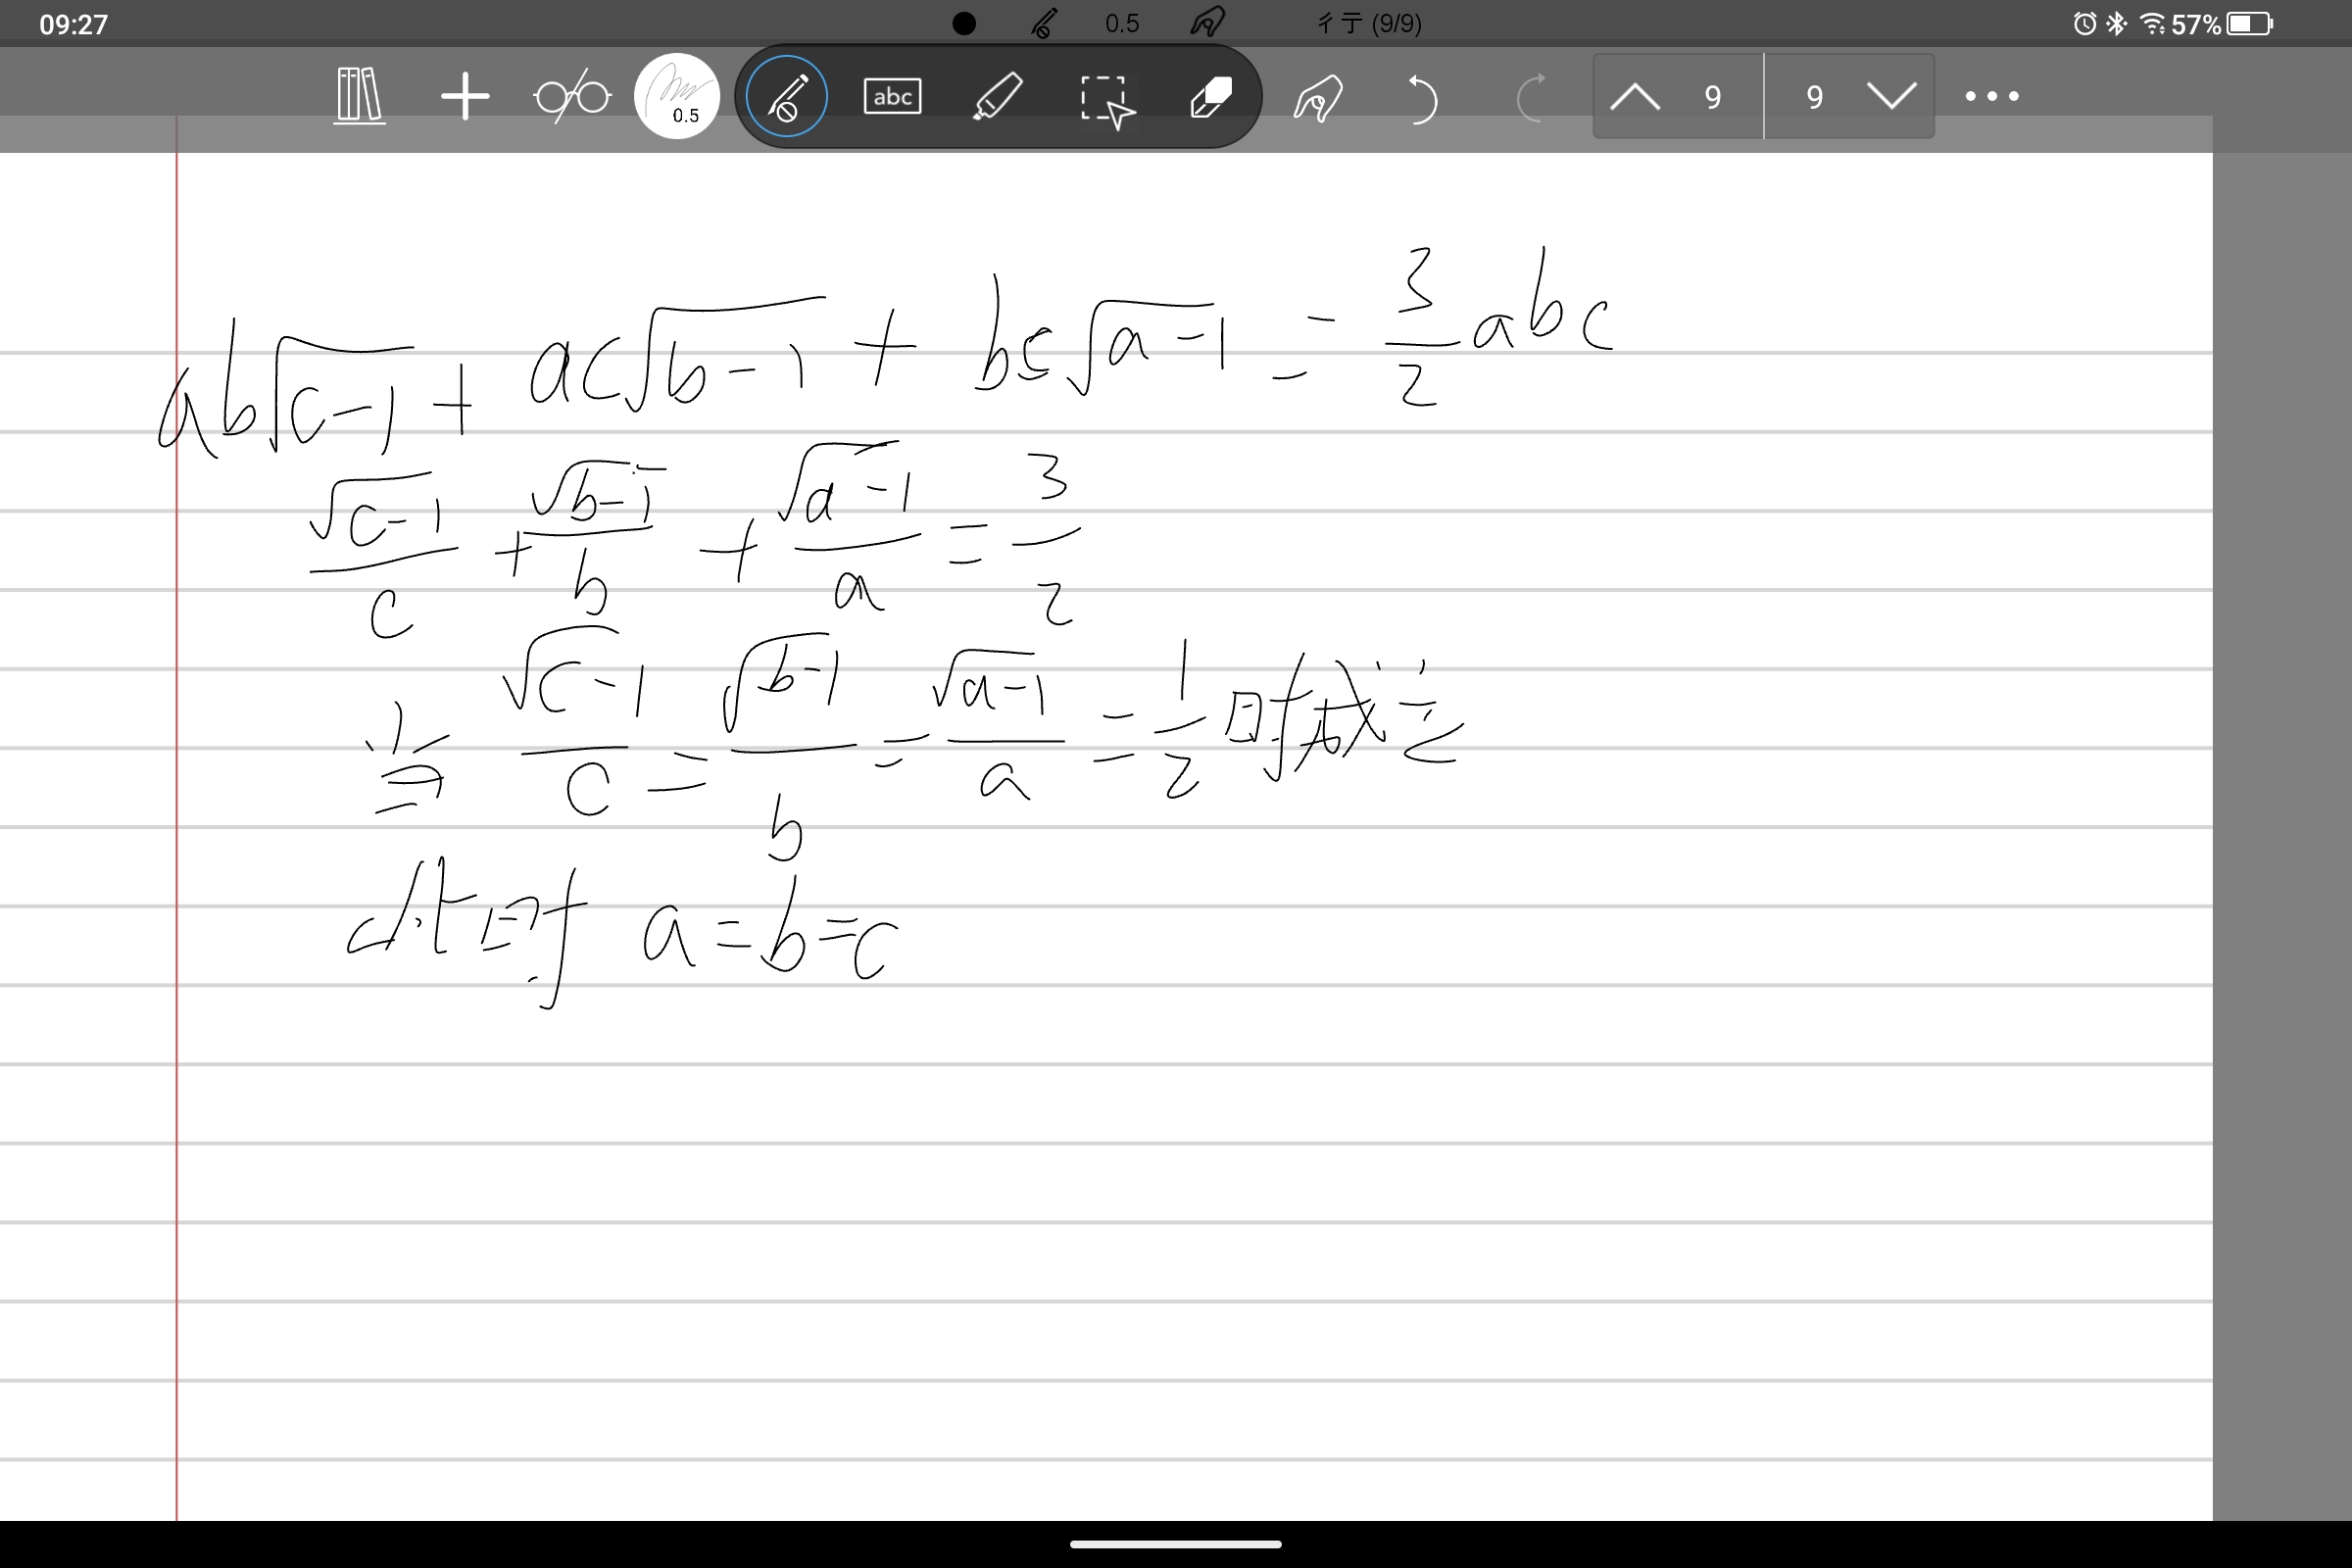 09:27
0.5
彳亍 (9/9)
57%
0.5
abc
9
9
ab√(c-1) + ac√(b-1) + bc√(a-1) = 3/2 abc
√(c-1)/c + √(b-1)/b + √(a-1)/a = 3/2
当 √(c-1)/c = √(b-1)/b = √(a-1)/a = 1/2 时成立
此时 a=b=c